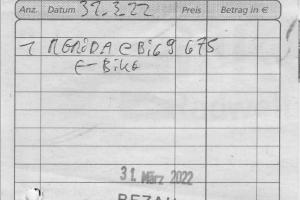 Anz. Datum 31.3.22 Preis Betrag in €
1 MERIDA eBIG 9 675
E-Bike
31. März 2022
BEZAH